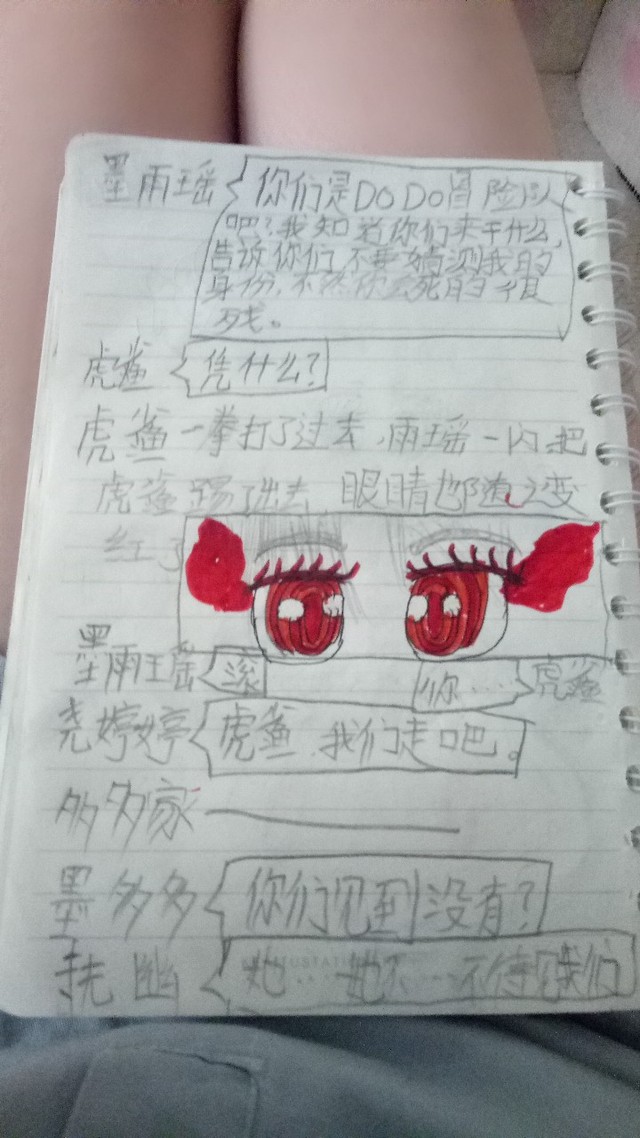 墨雨瑶 你们是DoDo冒险队
吧?我知道你们来干什么,
告诉你们不要猜测我的
身份,不然你会死的很
残。
虎鲨 凭什么?
虎鲨一拳打了过去,雨瑶一闪把
虎鲨踢了出去 眼睛都随之变
红了
墨雨瑶 滚 你…… 虎鲨
尧婷婷 虎鲨,我们走吧。
多多家
墨多多 你们见到没有?
她…她不…不待见我们